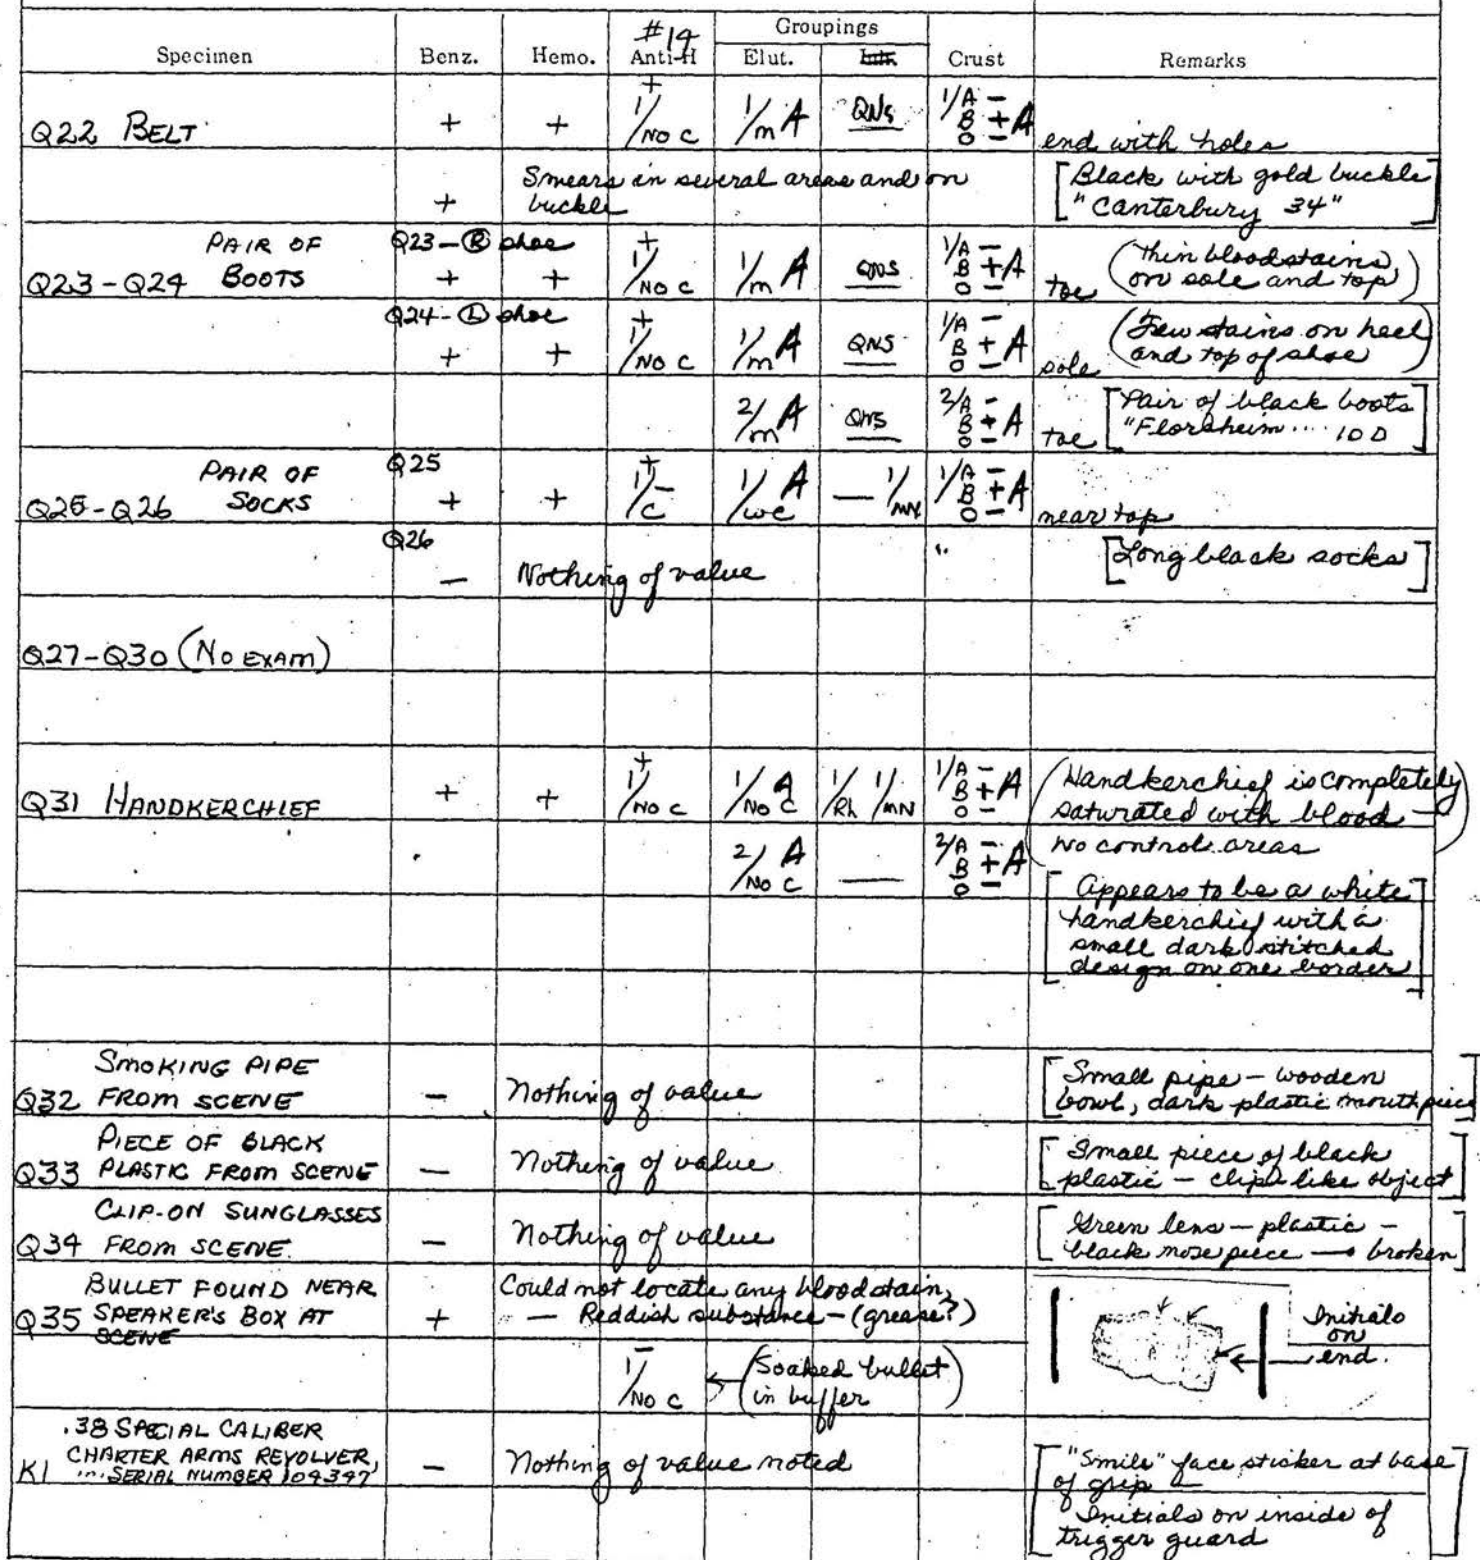 #19
Groupings
Specimen Benz. Hemo. Anti-H Elut. Crust Remarks
Q22 BELT + + + 1/NO C 1/m A QNS 1/A - B + A O - end with holes
+ Smears in several areas and on buckle [Black with gold buckle "Canterbury 34"]
PAIR OF Q23-Ⓡ shoe
Q23-Q24 BOOTS + + + 1/NO C 1/m A QNS 1/A - B + A O - toe (Thin bloodstains on sole and top)
Q24-Ⓛ shoe
+ + + 1/NO C 1/m A QNS 1/A - B + A O - sole (Few stains on heel and top of shoe
2/m A QNS 2/A - B + A O - toe [Pair of black boots "Florsheim .... 10 D]
PAIR OF Q25
Q25-Q26 SOCKS + + + 1/- C 1/wc A — 1/MN 1/A - B + A O - near top
Q26
- Nothing of value [Long black socks]
Q27-Q30 (NO EXAM)
Q31 HANDKERCHIEF + + + 1/NO C 1/NO C A 1/Rh 1/MN 1/A - B + A O - (Handkerchief is completely
saturated with blood —
2/NO C A — 2/A - B + A O - no control areas)
[Appears to be a white
handkerchief with a
small dark stitched
design on one border]
SMOKING PIPE
Q32 FROM SCENE - Nothing of value [Small pipe - wooden
bowl, dark plastic mouthpiece]
PIECE OF BLACK
Q33 PLASTIC FROM SCENE - Nothing of value [Small piece of black
plastic - clip-like object]
CLIP-ON SUNGLASSES
Q34 FROM SCENE. - Nothing of value [Green lens - plastic -
black nose piece — broken]
BULLET FOUND NEAR Could not locate any bloodstain,
Q35 SPEAKER'S BOX AT + — Reddish substance - (grease?) Initials
SCENE on
end.
- 1/NO C (Soaked bullet
in buffer)
.38 SPECIAL CALIBER
CHARTER ARMS REVOLVER,
K1 ... SERIAL NUMBER 104347 - Nothing of value noted ["Smile" face sticker at base
of grip —
Initials on inside of
trigger guard]